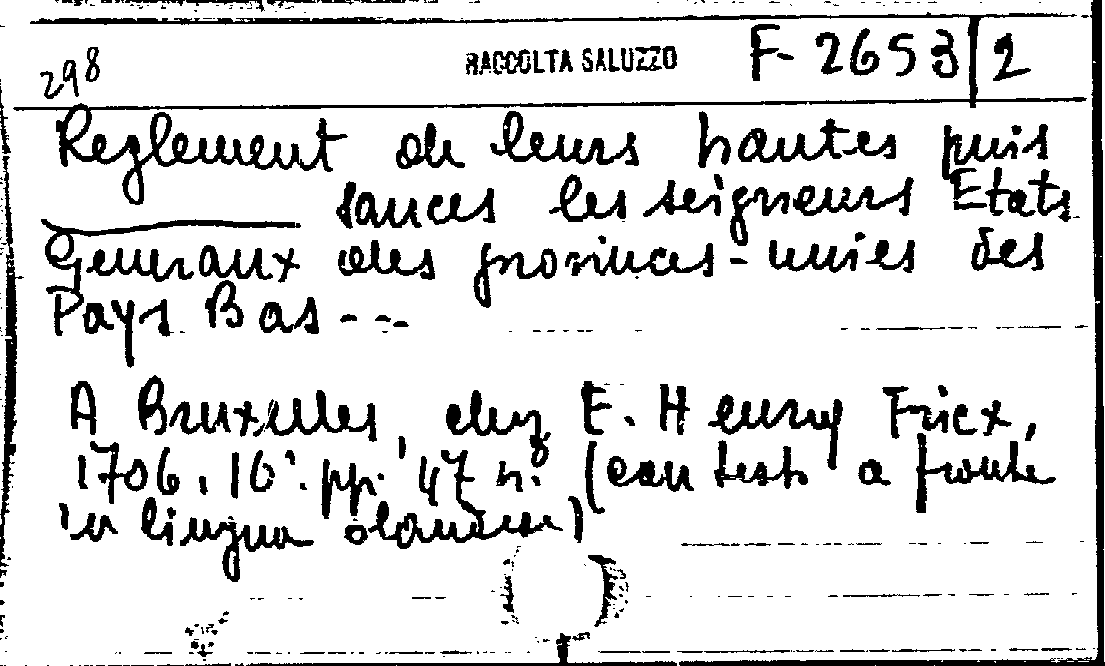 298 RACCOLTA SALUZZO F-2653/2
Reglement de leurs hautes puis
sances les seigneurs Etats
Generaux des provinces-unies des
Pays Bas ---
A Bruxelles, chez E. Henry Fricx,
1706, 16°. pp. 47 n. (con testo a fronte
in lingua olandese)